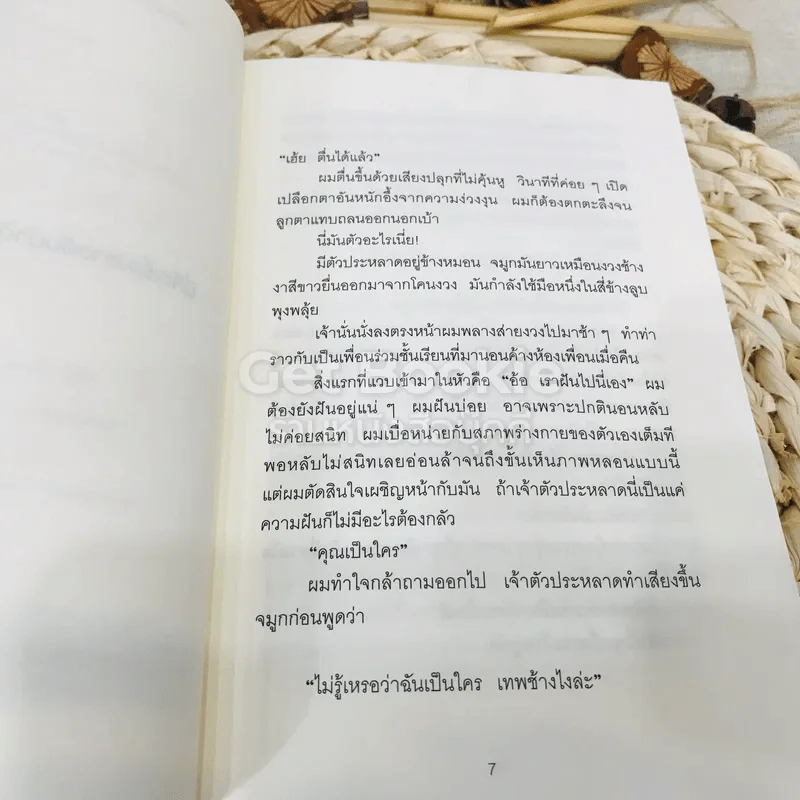 “เฮ้ย ตื่นได้แล้ว”
ผมตื่นขึ้นด้วยเสียงปลุกที่ไม่คุ้นหู วินาทีที่ค่อย ๆ เปิด
เปลือกตาอันหนักอึ้งจากความง่วงงุน ผมก็ต้องตกตะลึงจน
ลูกตาแทบถลนออกนอกเบ้า
นี่มันตัวอะไรเนี่ย!
มีตัวประหลาดอยู่ข้างหมอน จมูกมันยาวเหมือนงวงช้าง
งาสีขาวยื่นออกมาจากโคนงวง มันกำลังใช้มือหนึ่งในสี่ข้างลูบ
พุงพลุ้ย
เจ้านั่นนั่งลงตรงหน้าผมพลางส่ายงวงไปมาช้า ๆ ทำท่า
ราวกับเป็นเพื่อนร่วมชั้นเรียนที่มานอนค้างห้องเพื่อนเมื่อคืน
Get Bookie
สิ่งแรกที่แวบเข้ามาในหัวคือ “อ้อ เราฝันไปนี่เอง” ผม
ต้องยังฝันอยู่แน่ ๆ ผมฝันบ่อย อาจเพราะปกตินอนหลับ
ไม่ค่อยสนิท ผมเบื่อหน่ายกับสภาพร่างกายของตัวเองเต็มที
พอหลับไม่สนิทเลยอ่อนล้าจนถึงขั้นเห็นภาพหลอนแบบนี้
แต่ผมตัดสินใจเผชิญหน้ากับมัน ถ้าเจ้าตัวประหลาดนี่เป็นแค่
ความฝันก็ไม่มีอะไรต้องกลัว
“คุณเป็นใคร”
ผมทำใจกล้าถามออกไป เจ้าตัวประหลาดทำเสียงขึ้น
จมูกก่อนพูดว่า
“ไม่รู้เหรอว่าฉันเป็นใคร เทพช้างไงล่ะ”
7